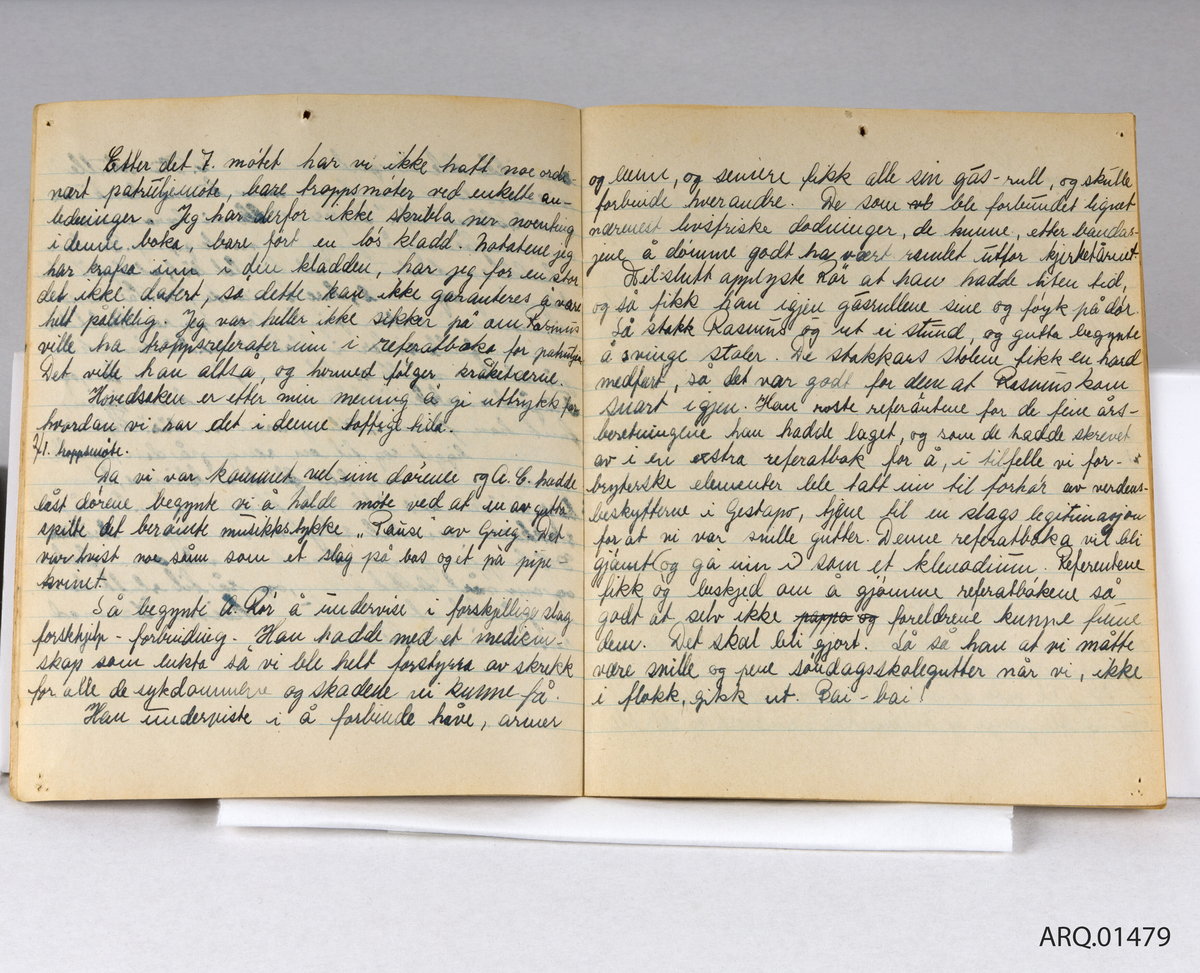 Etter det 7. møtet har vi ikke hatt noe ordi-
nært patruljemøte, bare troppsmøter ved enkelte an-
ledninger. Jeg har derfor ikke skribla ner noenting
i denne boka, bare ført en løs kladd. Notatene jeg
har krafsa inn i den kladden, har jeg for en stor
del ikke datert, så dette kan ikke garanteres å være
helt pålitlig. Jeg var heller ikke sikker på om Rasmus
ville ha troppsreferater inn i referatboka for patruljen
Det ville han altså, og hermed følger kråketærne.
Hovedsaken er etter min mening å gi uttrykk for
hvordan vi har det i denne
1. troppsmøte.
Da vi var kommet vel inn dørene og A. C. hadde
låst dørene begynte vi å holde møte ved at en av gutta
spilte det berømte musikkstykke „Pause" av Grieg. Det
var hvist noe sånn som et slag på bas og et på pipe-
kvinet.
Så begynte A. Rör å undervise i forskjellige slag
førsthjelp-forbinding. Han hadde med et medicin-
skap som lukta så vi ble helt forstyrra av skrekk
for alle de sykdommene og skadene vi kunne få.
Han underviste i å forbinde håve, armer
og benn, og seinere fikk alle sin gas-rull, og skulle
forbinde hverandre. De som vl ble forbundet lignet
nærmest livsfriske dødninger, de kunne, etter bandas-
jene å dømme godt ha vært ramlet utfor kjerketårnet.
Tilslutt opplyste Rör at han hadde liten tid,
og så fikk han igjen gasrullene sine og føyk på dør.
Så stakk Rasmus og ut ei stund, og gutta begynte
å svinge stoler. De stakkars stolene fikk en hard
medfart, så det var godt for dem at Rasmus kom
snart igjen. Han roste referentene for de fine års-
beretningene han hadde laget, og som de hadde skrevet
av i en ekstra referatbok for å, i tilfelle vi for-
bryterske elementer ble tatt inn til forhør av verdens-
beskytterne i Gestapo, tjene til en slags legitimasjon
for at vi var snille gutter. Denne referatboka vil bli
gjømt (og gå inn i) som et klenodium. Referentene
fikk og beskjed om å gjømme referatbøkene så
godt at selv ikke pappa og foreldrene kunne finne
dem. Det skal bli gjort. Så sa han at vi måtte
være snille og pene søndagsskolegutter når vi, ikke
i flokk, gikk ut. Bai-bai!
ARQ.01479